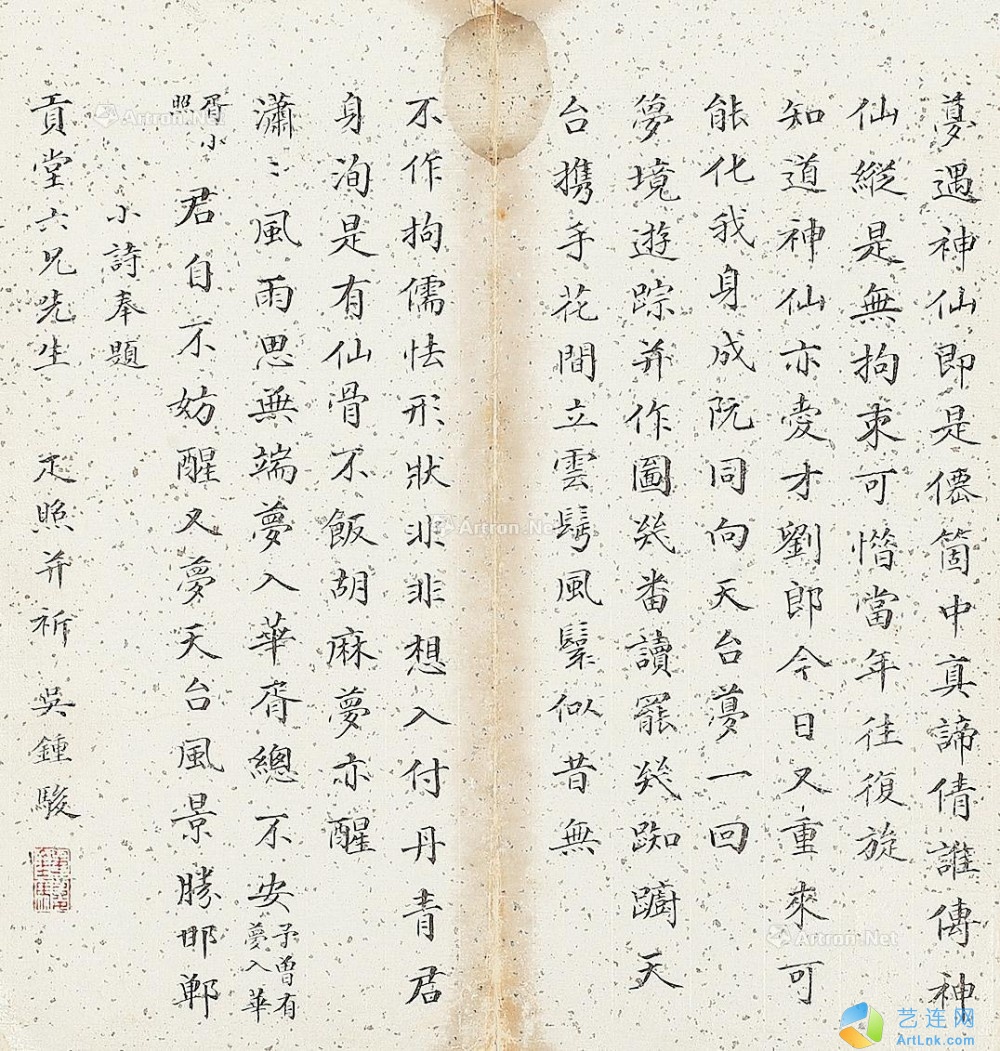 夢遇神仙即是僊箇中真諦倩誰傳神
仙縱是無拘束可惜當年往復旋
知道神仙亦愛才劉郎今日又重來可
能化我身成阮同向天台夢一回
夢境遊踪并作圖幾番讀罷幾踟躕天
台攜手花間立雲鬟風鬟似昔無
不作拘儒怯形狀非非想入付丹青君
身洵是有仙骨不飯胡麻夢亦醒
瀟〻風雨思無端夢入華胥總不安予曾有夢入華
胥小照君自不妨醒又夢天台風景勝邯鄲
小詩奉題
貢堂六兄先生 疋照并祈 吳鍾駿
Artron.Net
Artron.Net
Artron.Net
艺连网
ArtLnk.com